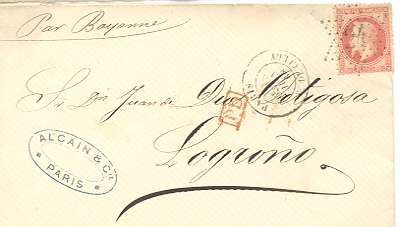 Par Bayonne
Sr. Dn. Juan de Dios Ortigosa
PD
Logroño
ALCAIN & Cie
PARIS
PARIS